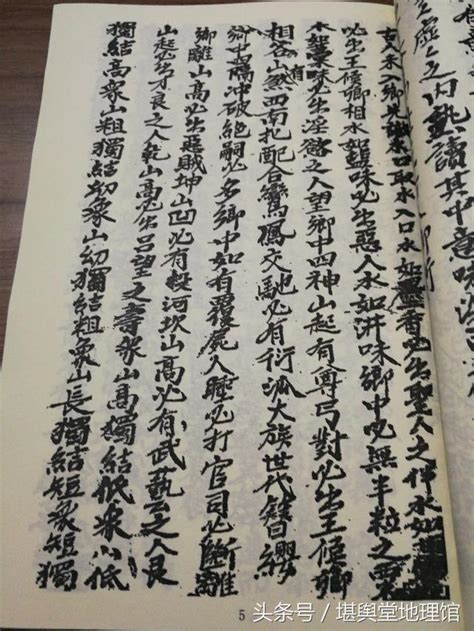 之內熟讀其中意味
入鄉先識水口取水入口水如墨香必生聖人之伴水如
必出王侯卿相水如韶味必生惡人水如泔味鄉中必無半粒之粟
味必生淫慾之人望鄉中四神山起有尊弓對必出王侯鄉
相谷山然有西南北配合鸞鳳交馳必有衍派大族世代簪纓
鄉中隔冲破絕嗣必多鄉中如有覆屍人睡必打官司必斷離
鄉離山高必出惡賊坤山凹必有投河坎山高必有武藝之人艮
山起必生才良之人乾山高必生呂望之壽眾山高獨結低眾山低
獨結高眾山粗獨結幼眾山幼獨結粗眾山長獨結短眾短獨
5
头条号／堪舆堂地理馆